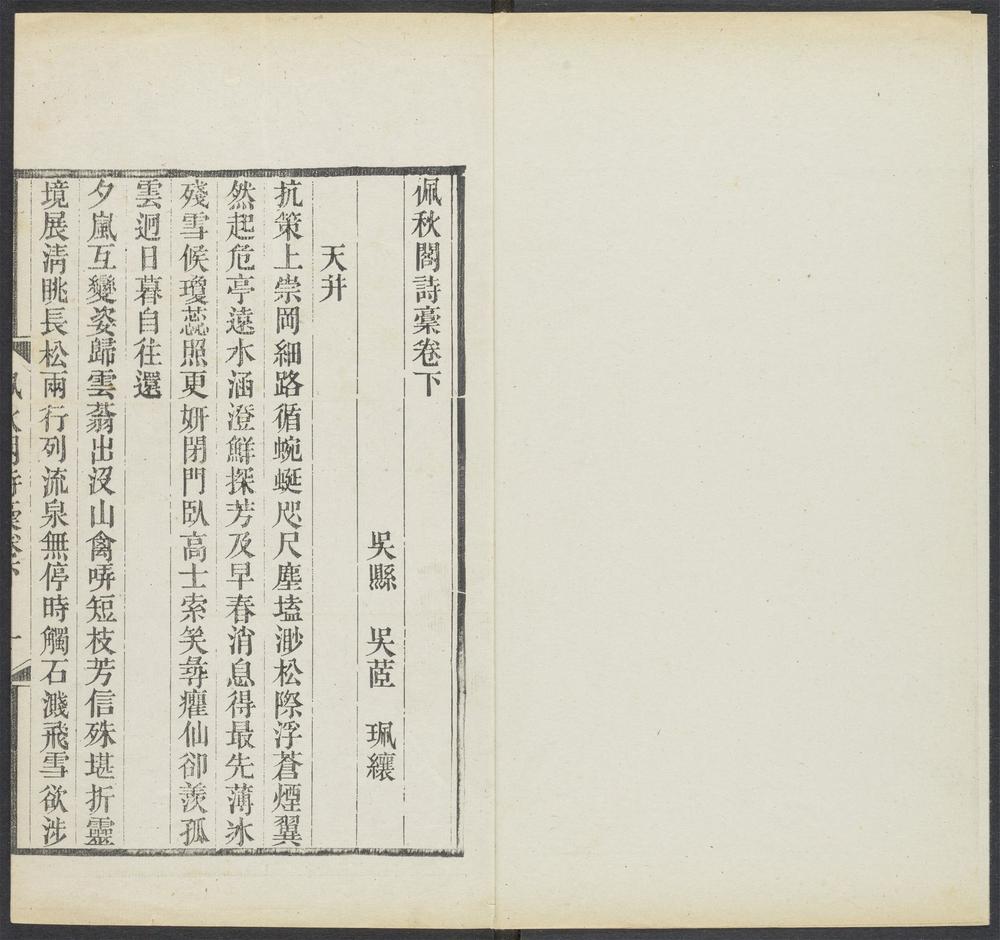 佩秋閣詩稾卷下
吳縣　吳茝　珮纕
天井
抗策上崇岡細路循蜿蜒咫尺塵壒渺松際浮蒼煙翼
然起危亭遠水涵澄鮮探芳及早春消息得最先薄冰
殘雪候瓊蕊照更妍閉門臥高士索笑尋癯仙卻羨孤
雲迥日暮自往還
夕嵐互變姿歸雲蓊出沒山禽哢短枝芳信殊堪折靈
境展淸眺長松兩行列流泉無停時觸石濺飛雪欲涉
佩秋閣詩稾卷下　一